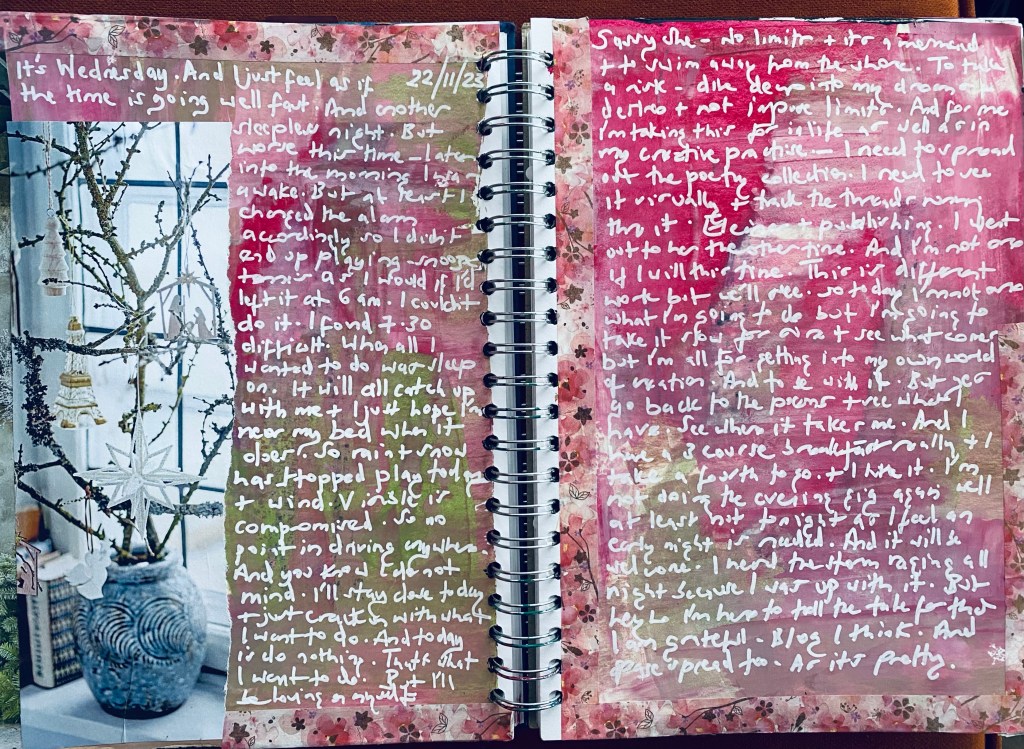 It's Wednesday. And I just feel as if 22/11/23
the time is going well fast. And another
sleepless night. But
worse this time – later
into the morning I was
awake. But at least I
changed the alarm
accordingly so I didn't
end up playing snooze
tennis as I would if I'd
left it at 6 am. I couldn't
do it. I found 7.30
difficult. When all I
wanted to do was sleep
on. It will all catch up
with me + I just hope I'm
near my bed when it
does. So rain + snow
has stopped play today
+ wind. V inside is
compromised. So no
point in driving anywhere.
And you know I do not
mind. I'll stay close today
+ just crack on with what
I want to do. And today
is do nothing. That's what
I want to do. But I'll
be loving on myself
Sassy She – No limits + it's a mermaid
+ to swim away from the shore. To take
a risk – dive deep into my dreams +
desires + not impose limits. And for me
I'm taking this for in life as well as in
my creative practise – I need to spread
out the poetry collection. I need to see
it visually + track the threads running
thru it. + publishing. I went
out to her the other time. And I'm not sure
if I will this time. This is different
work but we'll see. So today I'm not sure
what I'm going to do but I'm going to
take it slow for + see what comes
but I'm all for getting into my own world
of creation. And to be with it. But yes
go back to the poems + see what I
have. See where it takes me. And I
have a 3 course breakfast really + I
take a fourth to go + I like it. I'm
not doing the evening gig again well
at least not tonight as I feel an
early night is needed. And it will be
welcome. I heard the storm raging all
night because I was up with it. But
hey ho I'm here to tell the tale for that
I am grateful. Blog I think. And
page spread too. As it's pretty.